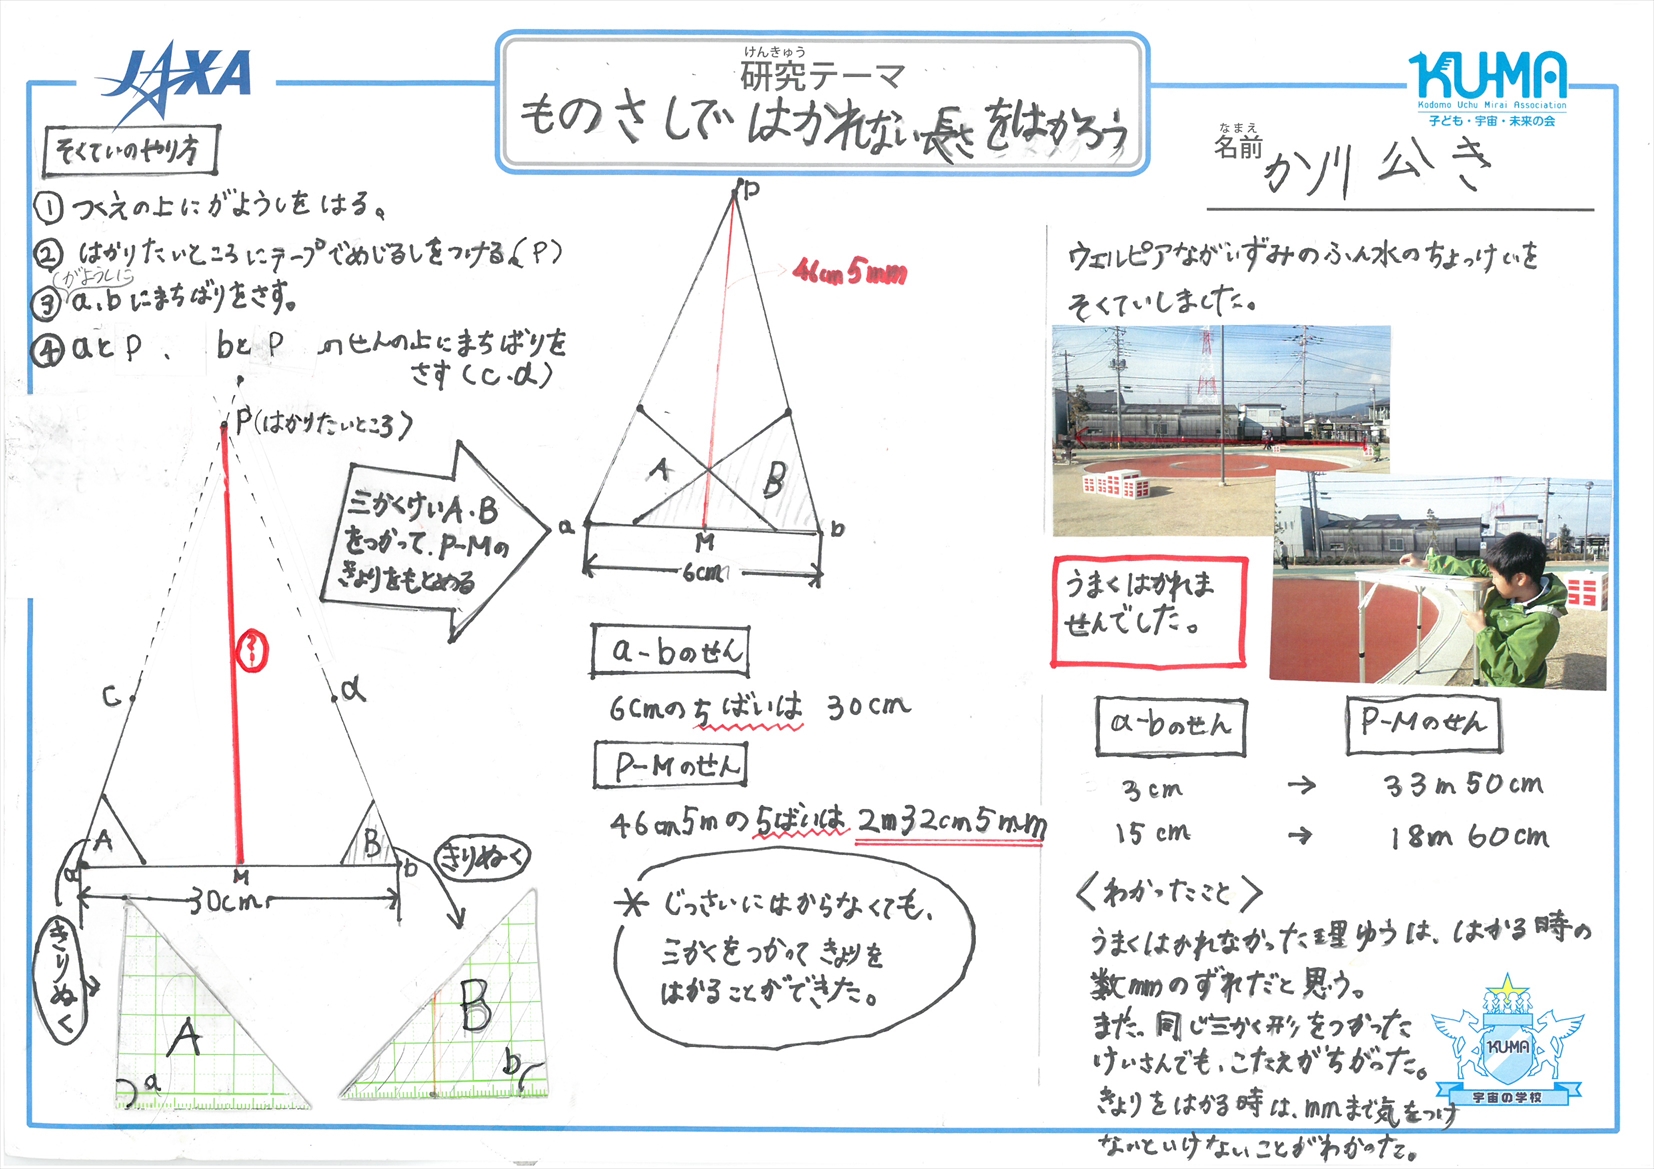 JAXA
けんきゅう
研究テーマ
ものさしではかれない長さをはかろう
KU-MA
Kodomo Uchu Mirai Association
子ども・宇宙・未来の会
なまえ
名前
か川 公き
そくていのやり方
① つくえの上にがようしをはる。
② はかりたいところにテープでめじるしをつける。(P)
(がようしに)
③ a、bにまちばりをさす。
④ aとP、 bとP のせんの上にまちばりを
さす(c.d)
P(はかりたいところ)
?
c
d
A
B
a
M
b
30cm
きりぬく
きりぬく
A
a
B
b
三かくけいA.B
をつかって、P-Mの
きょりをもとめる
P
46cm5mm
A
B
a
M
b
6cm
a-bのせん
6cmの5ばいは 30cm
P-Mのせん
46cm5mの5ばいは 2m32cm5mm
＊ じっさいにはからなくても、
三かくをつかってきょりを
はかることができた。
ウェルピアながいずみのふん水のちょっけいを
そくていしました。
うまくはかれま
せんでした。
a-bのせん
P-Mのせん
3cm → 33m50cm
15cm → 18m60cm
〈わかったこと〉
うまくはかれなかった理ゆうは、はかる時の
数mmのずれだと思う。
また、同じ三かく形をつかった
けいさんでも、こたえがちがった。
きょりをはかる時は、mmまで気をつけ
ないといけないことがわかった。
KU-MA
宇宙の学校